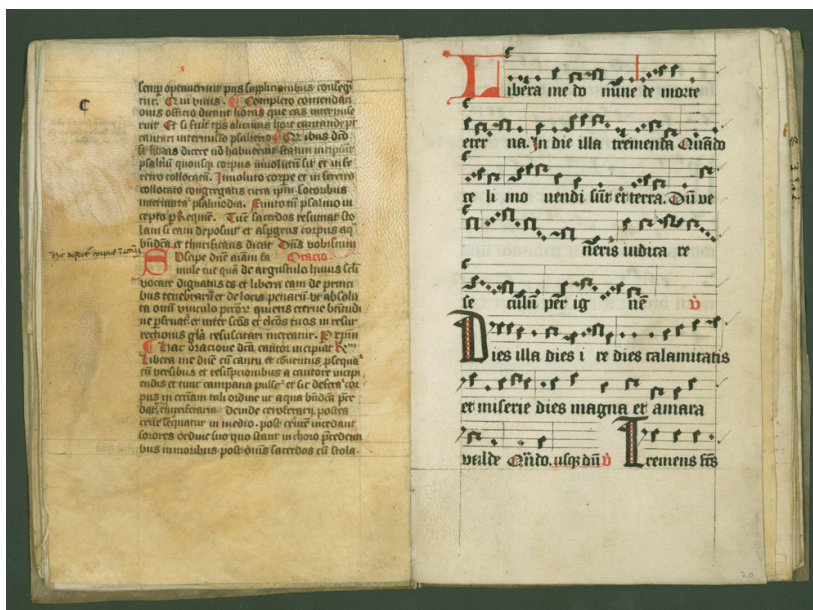 C
semp optaverunt piis supplicationibus conseq
tur. Qui vivis. Completo comendati
onis officio dicant horas quas eas intermise
runt Et si fuit tps alicuius hore cantande pt
cantari intermisso psalterio
si horas dicere nō habuerint statim incipiant
psalmū quousq corpus involutū sit et in fe
retro collocatū. Involuto corpe et in feretro
collocato congregatis circa ipm sororibus
intermittat psalmodia. Finito tū psalmo in
cepto p Requiē. Tūc sacerdos resumat sto
lam si eam deposuit et aspgens corpus aq
bndcta et thurificans dicat Dns vobiscum
Suscipe dnē aīam fa Oracio.
mule tue quā de ergastulo huius scli
vocare dignatus es et libera eam de princi
bus tenebrarū et de locis penarū ut absolu
ta oniū vinculo pctorū quietis eterne btitudi
ne pfruat et inter scōs et elcōs tuos in resur
rectionis glā resuscitari mereatur. P xpm
Hac oracione dcā cantor incipiat Rm
Libera me dnē cū cantu et conventus psequat
cū versibus et resūpcionibus a cantore incipi
endis et tunc campana pulset et sic deferat cor
pus in ecciam tali ordine ut aqua bndcta pce
dat thuriferaria deinde ceroferarii postea
crux sequatur in medio. post crucē incedant
sorores ordine suo quo stant in choro pcedenti
bus iunioribus post oms sacerdos cū stola.
Libera me do mine de morte
eter na. In die illa tremenda Quādo
ce li mo vendi sūt et terra. Dū ve
neris iudica re
se culū per ig nē v
Dies illa dies i re dies calamitatis
et miserie dies magna et amara
valde Qndo. usq dū v Tremens fcs
20